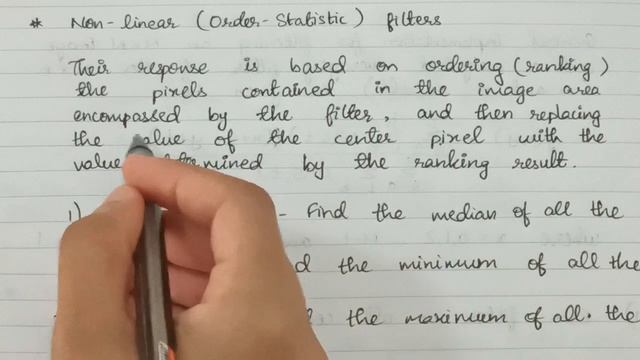 * Non-linear (Order-Statistic) filters
Their response is based on ordering (ranking)
the pixels contained in the image area
encompassed by the filter, and then replacing
the value of the center pixel with the
value by the ranking result.
1) - Find the median of all the
the minimum of all the
the maximum of all. the